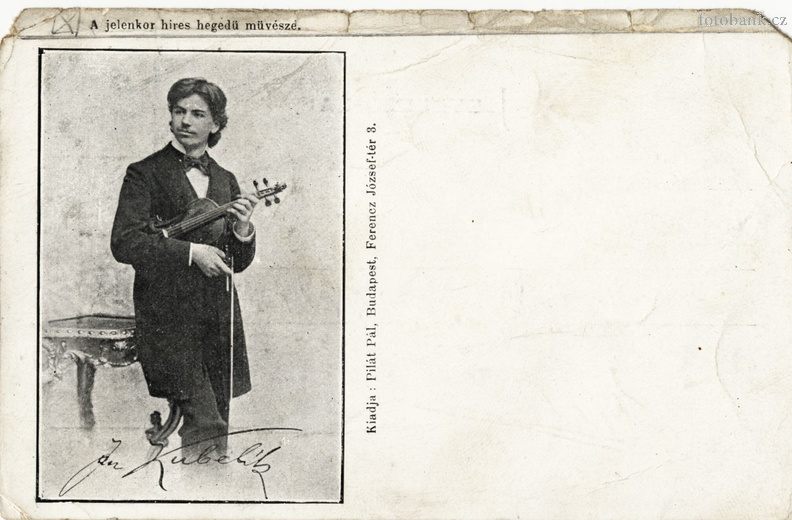 A jelenkor hires hegedü müvésze.
fotobank.cz
Kiadja : Pilát Pál, Budapest, Ferencz József-tér 3.
Jan Kubelík